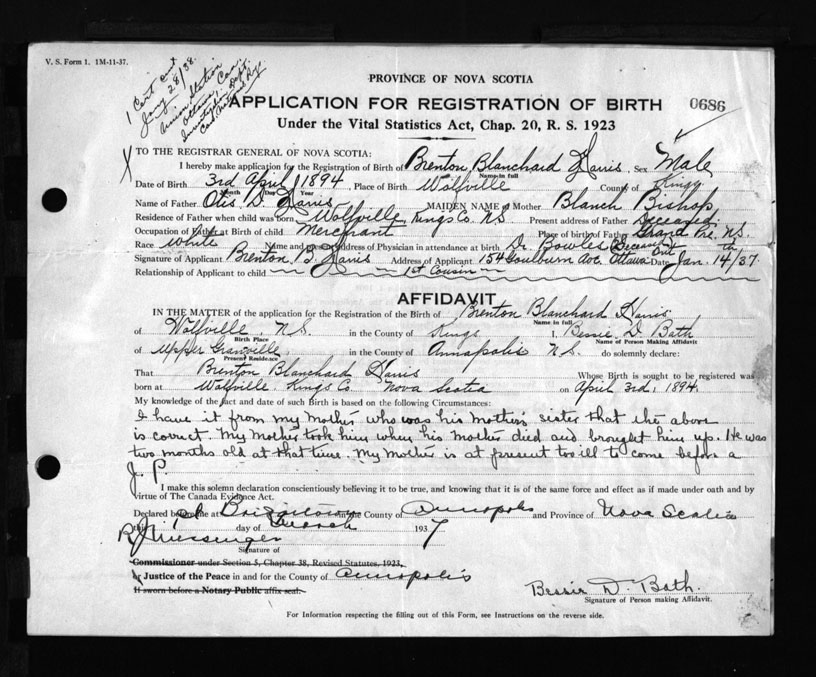 V. S. Form 1. 1M-11-37.
1 Cert out
Jany 28/38.
Union Station
Ottawa, Can.
Investigation Dept.
Can. National Rys.
PROVINCE OF NOVA SCOTIA
APPLICATION FOR REGISTRATION OF BIRTH 0686
Under the Vital Statistics Act, Chap. 20, R. S. 1923
X TO THE REGISTRAR GENERAL OF NOVA SCOTIA:
I hereby make application for the Registration of Birth of Brenton Blanchard Harris, Sex Male
Name in full
Date of Birth 3rd April 1894, Place of Birth Wolfville County of Kings
Month Day Year
Name of Father Otis D. Harris MAIDEN NAME of Mother Blanch Bishop
Residence of Father when child was born Wolfville Kings Co. N.S. Present address of Father Deceased
Occupation of Father at Birth of child Merchant Place of birth of Father Grand Pre, N.S.
Race White Name and present Address of Physician in attendance at birth Dr. Bowles Deceased
Signature of Applicant Brenton B. Harris Address of Applicant 154 Goulburn Ave. Ottawa Ont Date Jan. 14th/37.
Relationship of Applicant to child 1st Cousin
AFFIDAVIT
IN THE MATTER of the application for the Registration of the Birth of Brenton Blanchard Harris
Name in full
of Wolfville, N.S. in the County of Kings I, Bessie D. Bath
Birth Place Name of Person Making Affidavit
of Upper Granville, in the County of Annapolis N.S. do solemnly declare:
Present Residence
That Brenton Blanchard Harris Whose Birth is sought to be registered was
born at Wolfville Kings Co. Nova Scotia on April 3rd, 1894.
My knowledge of the fact and date of such Birth is based on the following Circumstances:
I have it from my Mother who was his Mother's sister that the above
is correct. My Mother took him when his Mother died and brought him up. He was
two months old at that time. My Mother is at present too ill to come before a
J. P.
I make this solemn declaration conscientiously believing it to be true, and knowing that it is of the same force and effect as if made under oath and by
virtue of The Canada Evidence Act.
Declared before me at Bridgetown in the County of Annapolis and Province of Nova Scotia
this 1st day of March 1937
R J Messenger
Signature of
Commissioner under Section 5, Chapter 38, Revised Statutes, 1923,
or Justice of the Peace in and for the County of Annapolis
If sworn before a Notary Public affix seal.
Bessie D. Bath.
Signature of Person making Affidavit.
For Information respecting the filling out of this Form, see Instructions on the reverse side.